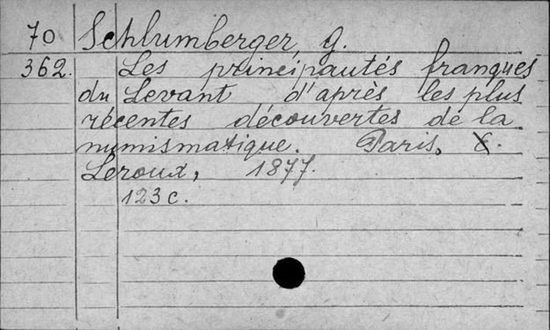 70 Schlumberger, G.
362. Les principautés franques
du Levant d'après les plus
récentes découvertes de la
numismatique. Paris,
Leroux, 1877.
123 c.